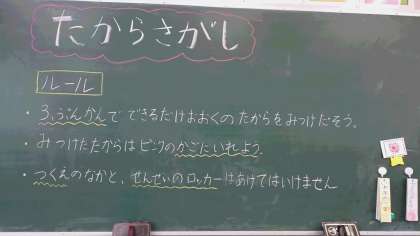 たからさがし
ルール
・3,ぷんかんで できるだけおおくの たからをみつけだそう。
・みつけたたからは ピンクのかごにいれよう.
・つくえのなかと、せんせいのロッカーはあけてはいけません